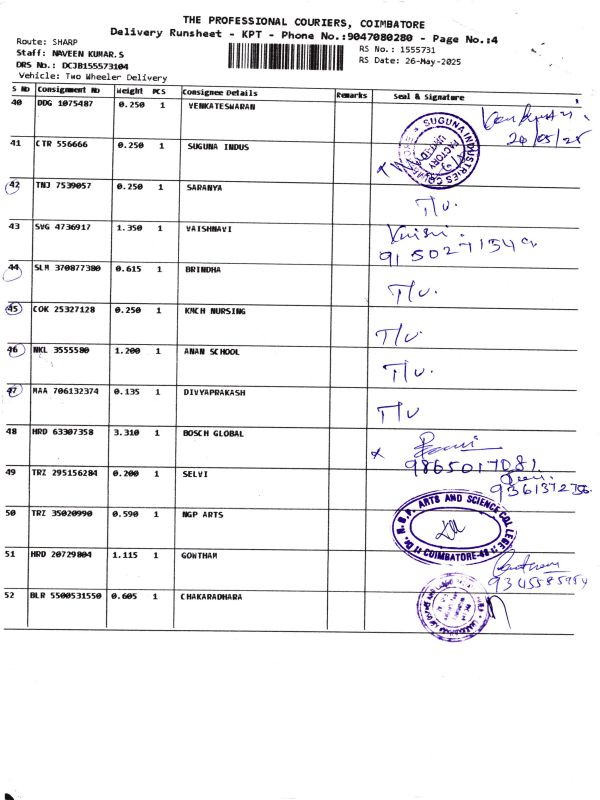 THE PROFESSIONAL COURIERS, COIMBATORE
Delivery Runsheet - KPT - Phone No.:9047080280 - Page No.:4
Route: SHARP
RS No.: 1555731
Staff: NAVEEN KUMAR.S
RS Date: 26-May-2025
DRS No.: DCJB155573104
Vehicle: Two Wheeler Delivery
S No Consignment No Weight PCS Consignee Details Remarks Seal & Signature
40 DDG 1075487 0.250 1 VENKATESWARAN
26/05/25
41 CTR 556666 0.250 1 SUGUNA INDUS
SUGUNA INDUSTRIES
FACTORY
UNIT
42 TNJ 7539057 0.250 1 SARANYA T/U.
43 SVG 4736917 1.350 1 VAISHNAVI
44 SLM 370877380 0.615 1 BRINDHA T/U.
45 COK 25327128 0.250 1 KMCH NURSING T/U.
46 NKL 3555580 1.200 1 ANAN SCHOOL T/U.
47 MAA 706132374 0.135 1 DIVYAPRAKASH T/U
48 HRD 63307358 3.310 1 BOSCH GLOBAL
9865017081.
49 TRZ 295156284 0.200 1 SELVI
50 TRZ 35020990 0.590 1 NGP ARTS
Dr. N.G.P. ARTS AND SCIENCE COLLEGE
COIMBATORE-48
51 HRD 20729804 1.115 1 GOWTHAM
52 BLR 5500531550 0.605 1 CHAKARADHARA